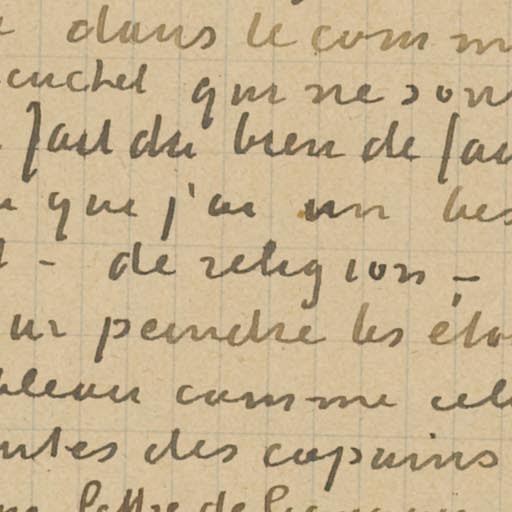 dans le comm
couchet qui ne son
fait du bien de fai
que j'ai un bes
- de religion -
ur peindre les éto
bleau comme cel
antes des copains
lettre de